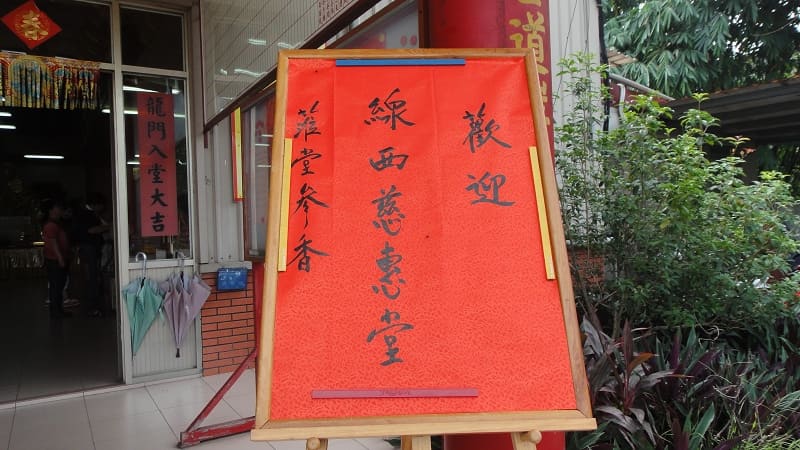 歡迎
線西慈惠堂
蒞堂參香
龍門入堂大吉
道
春